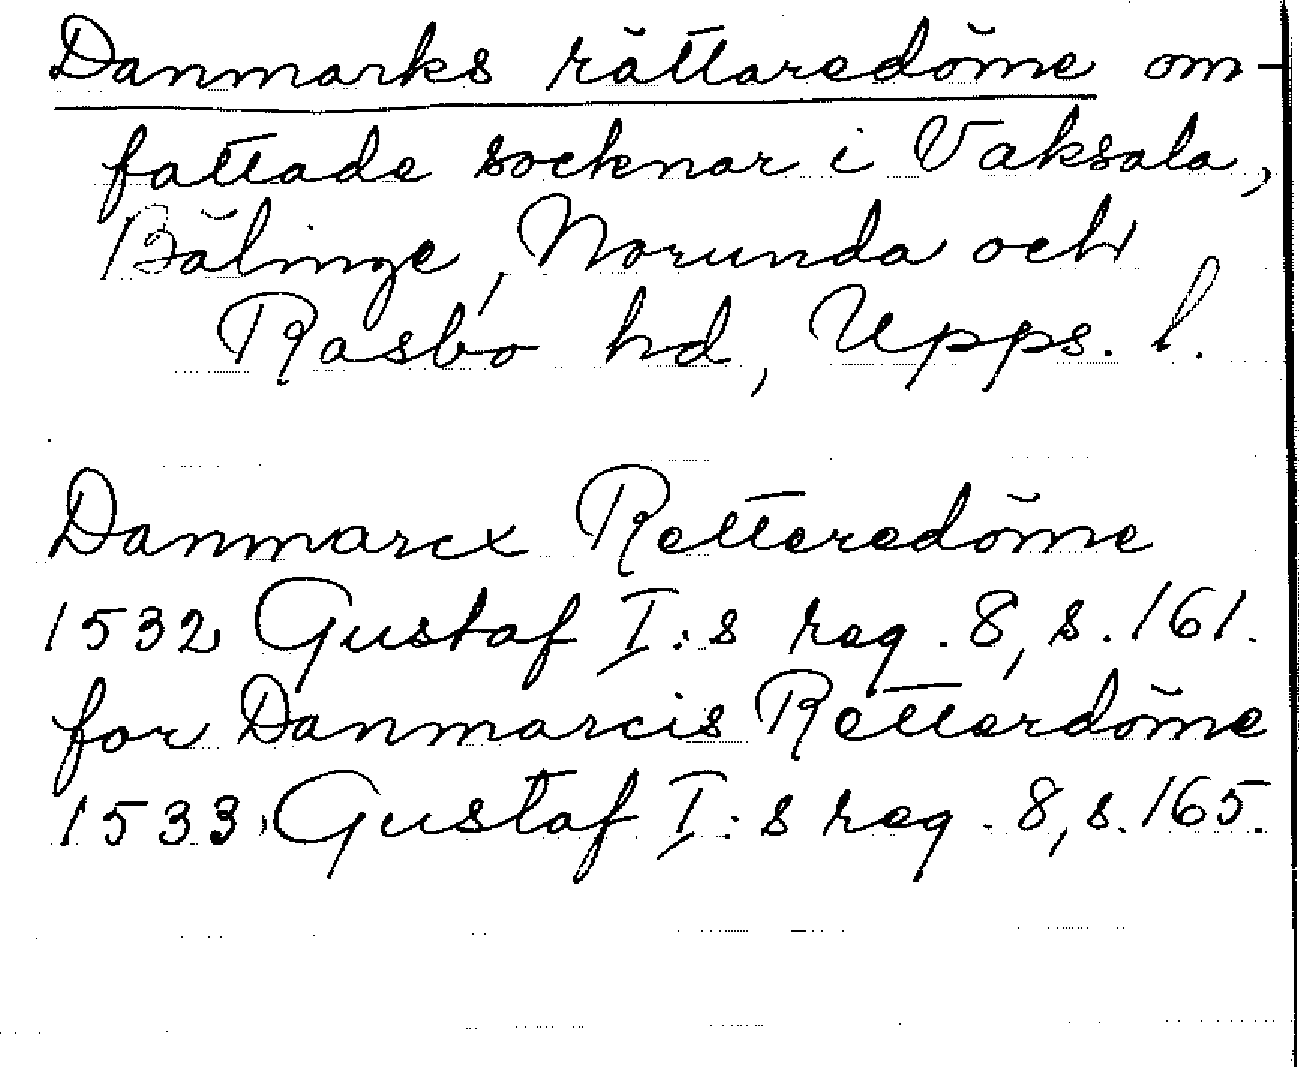 Danmarks rättaredöme om-
fattade socknar i Vaksala,
Bälinge, Norunda och
Rasbo hd, Upps. l.
Danmarcx Retteredöme
1532 Gustaf I:s reg. 8, s. 161.
for Danmarcis Retterdöme
1533 Gustaf I:s reg. 8, s. 165.